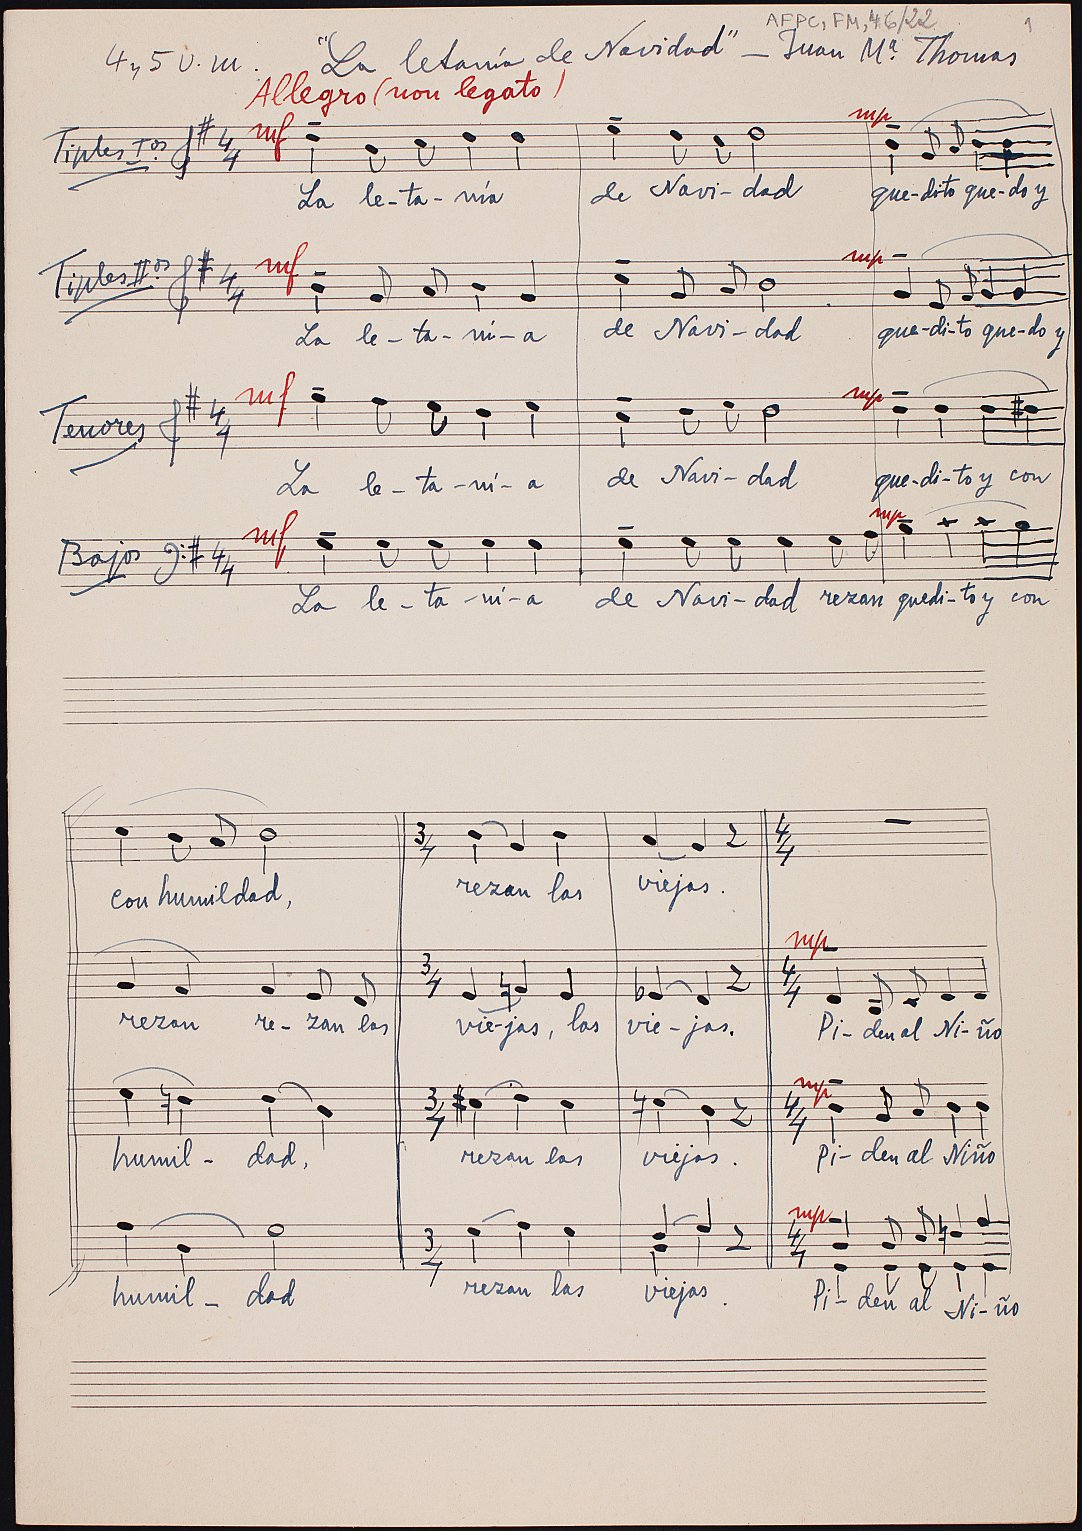 AFPC, FM, 46/22
1
4 y 5 v. m. "La letanía de Navidad" – Juan Mª Thomas
Allegro (non legato)
Tiples Ios 4/4 mf mp
La le-ta-nía de Navi-dad que-dito que-do y
Tiples IIos 4/4 mf mp
La le-ta-ní-a de Navi-dad que-di-to que-do y
Tenores 4/4 mf mp
La le-ta-ní-a de Navi-dad que-di-to y con
Bajos 4/4 mf mp
La le-ta-ní-a de Navi-dad rezan quedi-to y con
3/4 4/4
con humildad, rezan las viejas.
3/4 4/4 mp
rezan re-zan las vie-jas, las vie-jas. Pi-den al Ni-ño
3/4 4/4 mp
humil-dad, rezan las viejas. Pi-den al Niño
3/4 4/4 mp
humil-dad rezan las viejas. Pi-den al Ni-ño